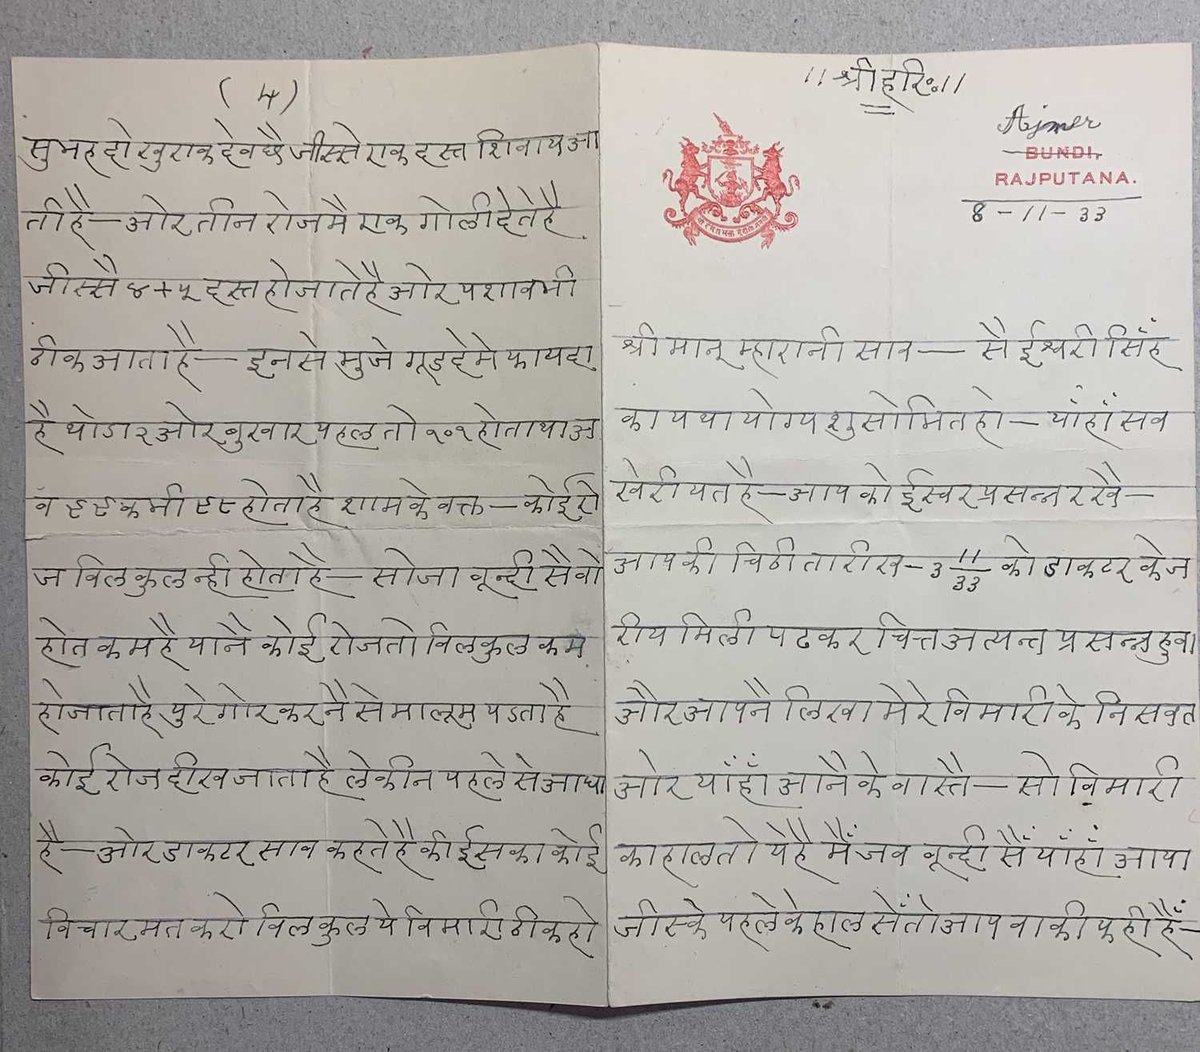 ॥श्रीहरिः॥
Ajmer
BUNDI,
RAJPUTANA.
8-11-33
श्रीमान् म्हारानी साव — सै ईश्वरीसिँह
का यथा योग्य शुसोभित हो — याँहाँ सव
खेरीयत है — आप को ईस्वर प्रसन्न रखै —
आपकी चिठी तारीख - 3 11/33 को डाकटर के ज
रीय मिली पढकर चित्त अत्यन्त प्रसन्न हुवा
और आपनै लिखा मेरे विमारी के निसवत
ओर याँहाँ आनै के वास्तै — सो विमारी
का हाल तो ये है मैँ जव वून्दी सैँ याँहाँ आया
जीस्के पहले के हाल सेँ तो आप वाकीफ ही हैँ —
(4)
सुभह दो खुराक देव छै जीस्से एक दस्त शिवाय आ
ती है — ओर तीन रोज मै एक गोली देते है
जीस्सै ४+५ दस्त हो जाते है ओर पशाव भी
ठीक आता है — इनसे मुजे गूड्डे मे फायदा
है थोडा २ ओर वुखार पहल तो १०१ होता था अ
वॅ ९९ कभी ९८ होता है शाम के वक्त — कोई रो
ज विलकुल न्ही होता है — सोजा वून्दी सै वो
होत कम है यानै कोई रोज तो विलकुल कम
हो जाता है पुरे गोर करनै से मालुम पडता है
कोई रोज दीख जाता है लेकीन पहले से आधा
है — ओर डाकटर साव कहते है की ईस का कोई
विचार मत करो विलकुल ये विमारी ठीक हो